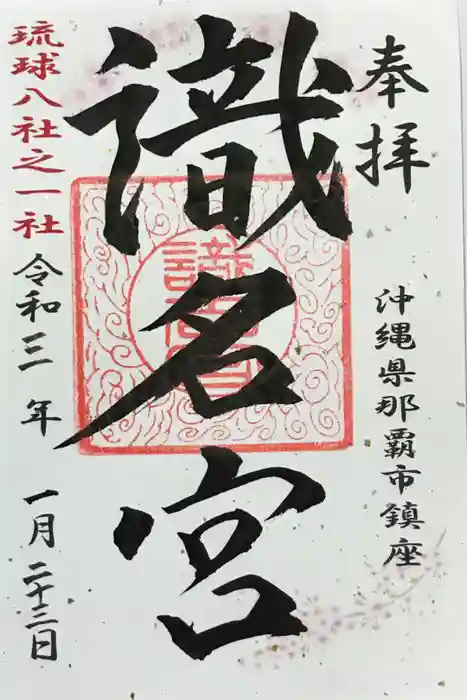 奉拝
沖縄県那覇市鎮座
識名宮
琉球八社之一社
令和三年一月二十三日